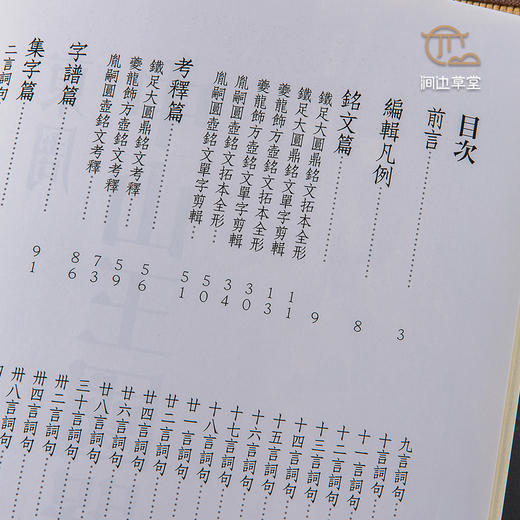 澗边草堂
目次
前言 3
編輯凡例 8
銘文篇 9
鐵足大圓鼎銘文拓本全形 11
鐵足大圓鼎銘文單字剪輯 13
夔龍飾方壺銘文拓本全形 30
夔龍飾方壺銘文單字剪輯 34
胤嗣圓壺銘文拓本全形 50
胤嗣圓壺銘文單字剪輯 51
考釋篇 56
鐵足大圓鼎銘文考釋 59
夔龍飾方壺銘文考釋 73
胤嗣圓壺銘文考釋 86
字譜篇 91
集字篇
二言詞句
九言詞句
十言詞句
十一言詞句
十二言詞句
十三言詞句
十四言詞句
十五言詞句
十六言詞句
十七言詞句
十八言詞句
廿一言詞句
廿二言詞句
廿四言詞句
廿六言詞句
廿八言詞句
三十言詞句
卅二言詞句
卅四言詞句
卅八言詞句